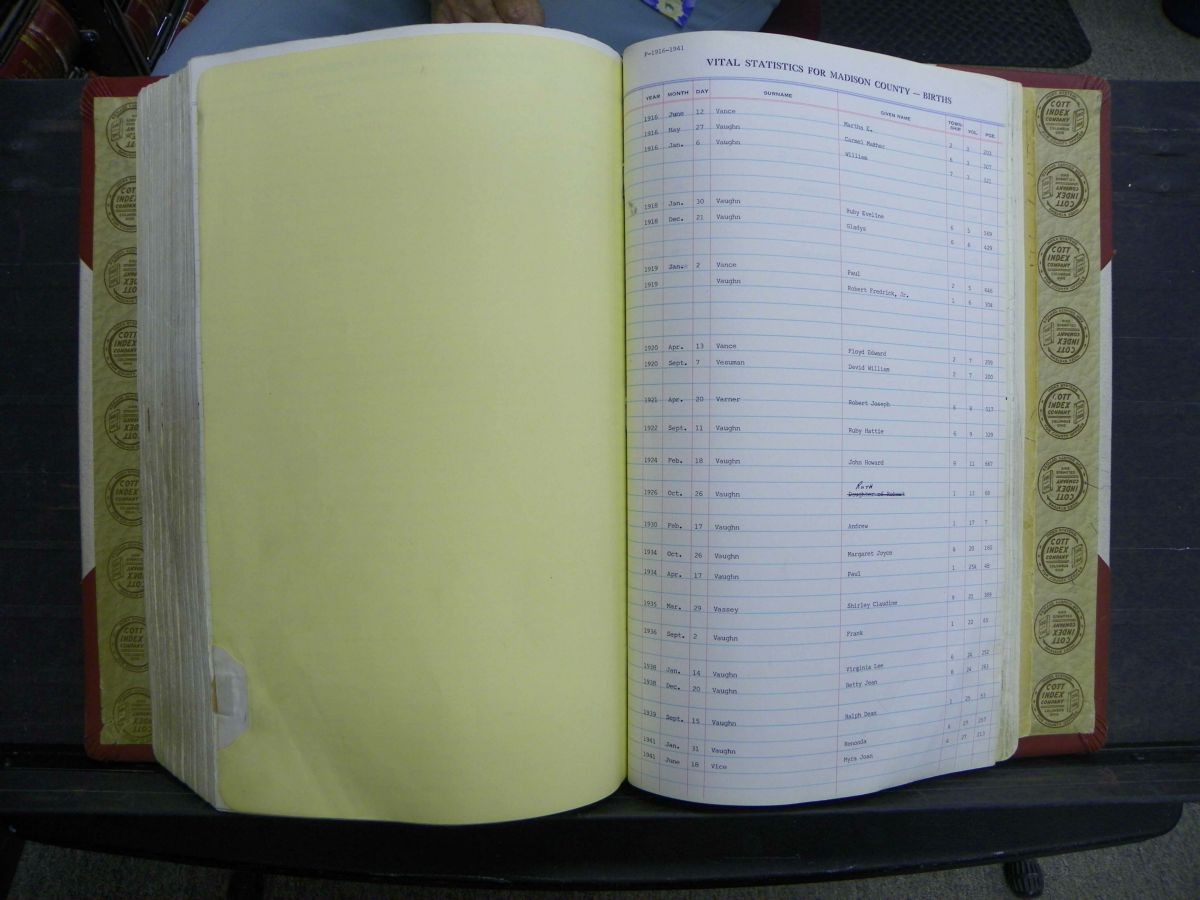 F-1916-1941
VITAL STATISTICS FOR MADISON COUNTY — BIRTHS
YEAR MONTH DAY SURNAME GIVEN NAME TOWN-SHIP VOL. PGE.
1916 June 12 Vance Martha E. 2 3 203
1916 May 27 Vaughn Carmel Madher 6 3 307
1916 Jan. 6 Vaughn William 7 3 321
1918 Jan. 30 Vaughn Ruby Eveline 6 5 369
1918 Dec. 21 Vaughn Gladys 6 6 429
1919 Jan. 2 Vance Paul 2 5 446
1919 Vaughn Robert Fredrick, Jr. 1 6 304
1920 Apr. 13 Vance Floyd Edward 2 7 299
1920 Sept. 7 Vesuman David William 2 7 200
1921 Apr. 20 Varner Robert Joseph 6 8 517
1922 Sept. 11 Vaughn Ruby Hattie 6 9 329
1924 Feb. 18 Vaughn John Howard 9 11 667
RUTH
1926 Oct. 26 Vaughn Daughter of Robert 1 13 60
1930 Feb. 17 Vaughn Andrew 1 17 7
1934 Oct. 26 Vaughn Margaret Joyce 8 20 160
1934 Apr. 17 Vaughn Paul 1 48
1935 Mar. 29 Vassey Shirley Claudine 9 21 389
1936 Sept. 2 Vaughn Frank 1 22 65
1938 Jan. 14 Vaughn Virginia Lee 6 24 252
1938 Dec. 20 Vaughn Betty Jean 6 24 263
1939 Sept. 15 Vaughn Ralph Dean 1 25 51
1941 Jan. 31 Vaughn Renonda 4 27 207
1941 June 18 Vice Myra Joan 4 27 213
COTT INDEX COMPANY
COLUMBUS OHIO